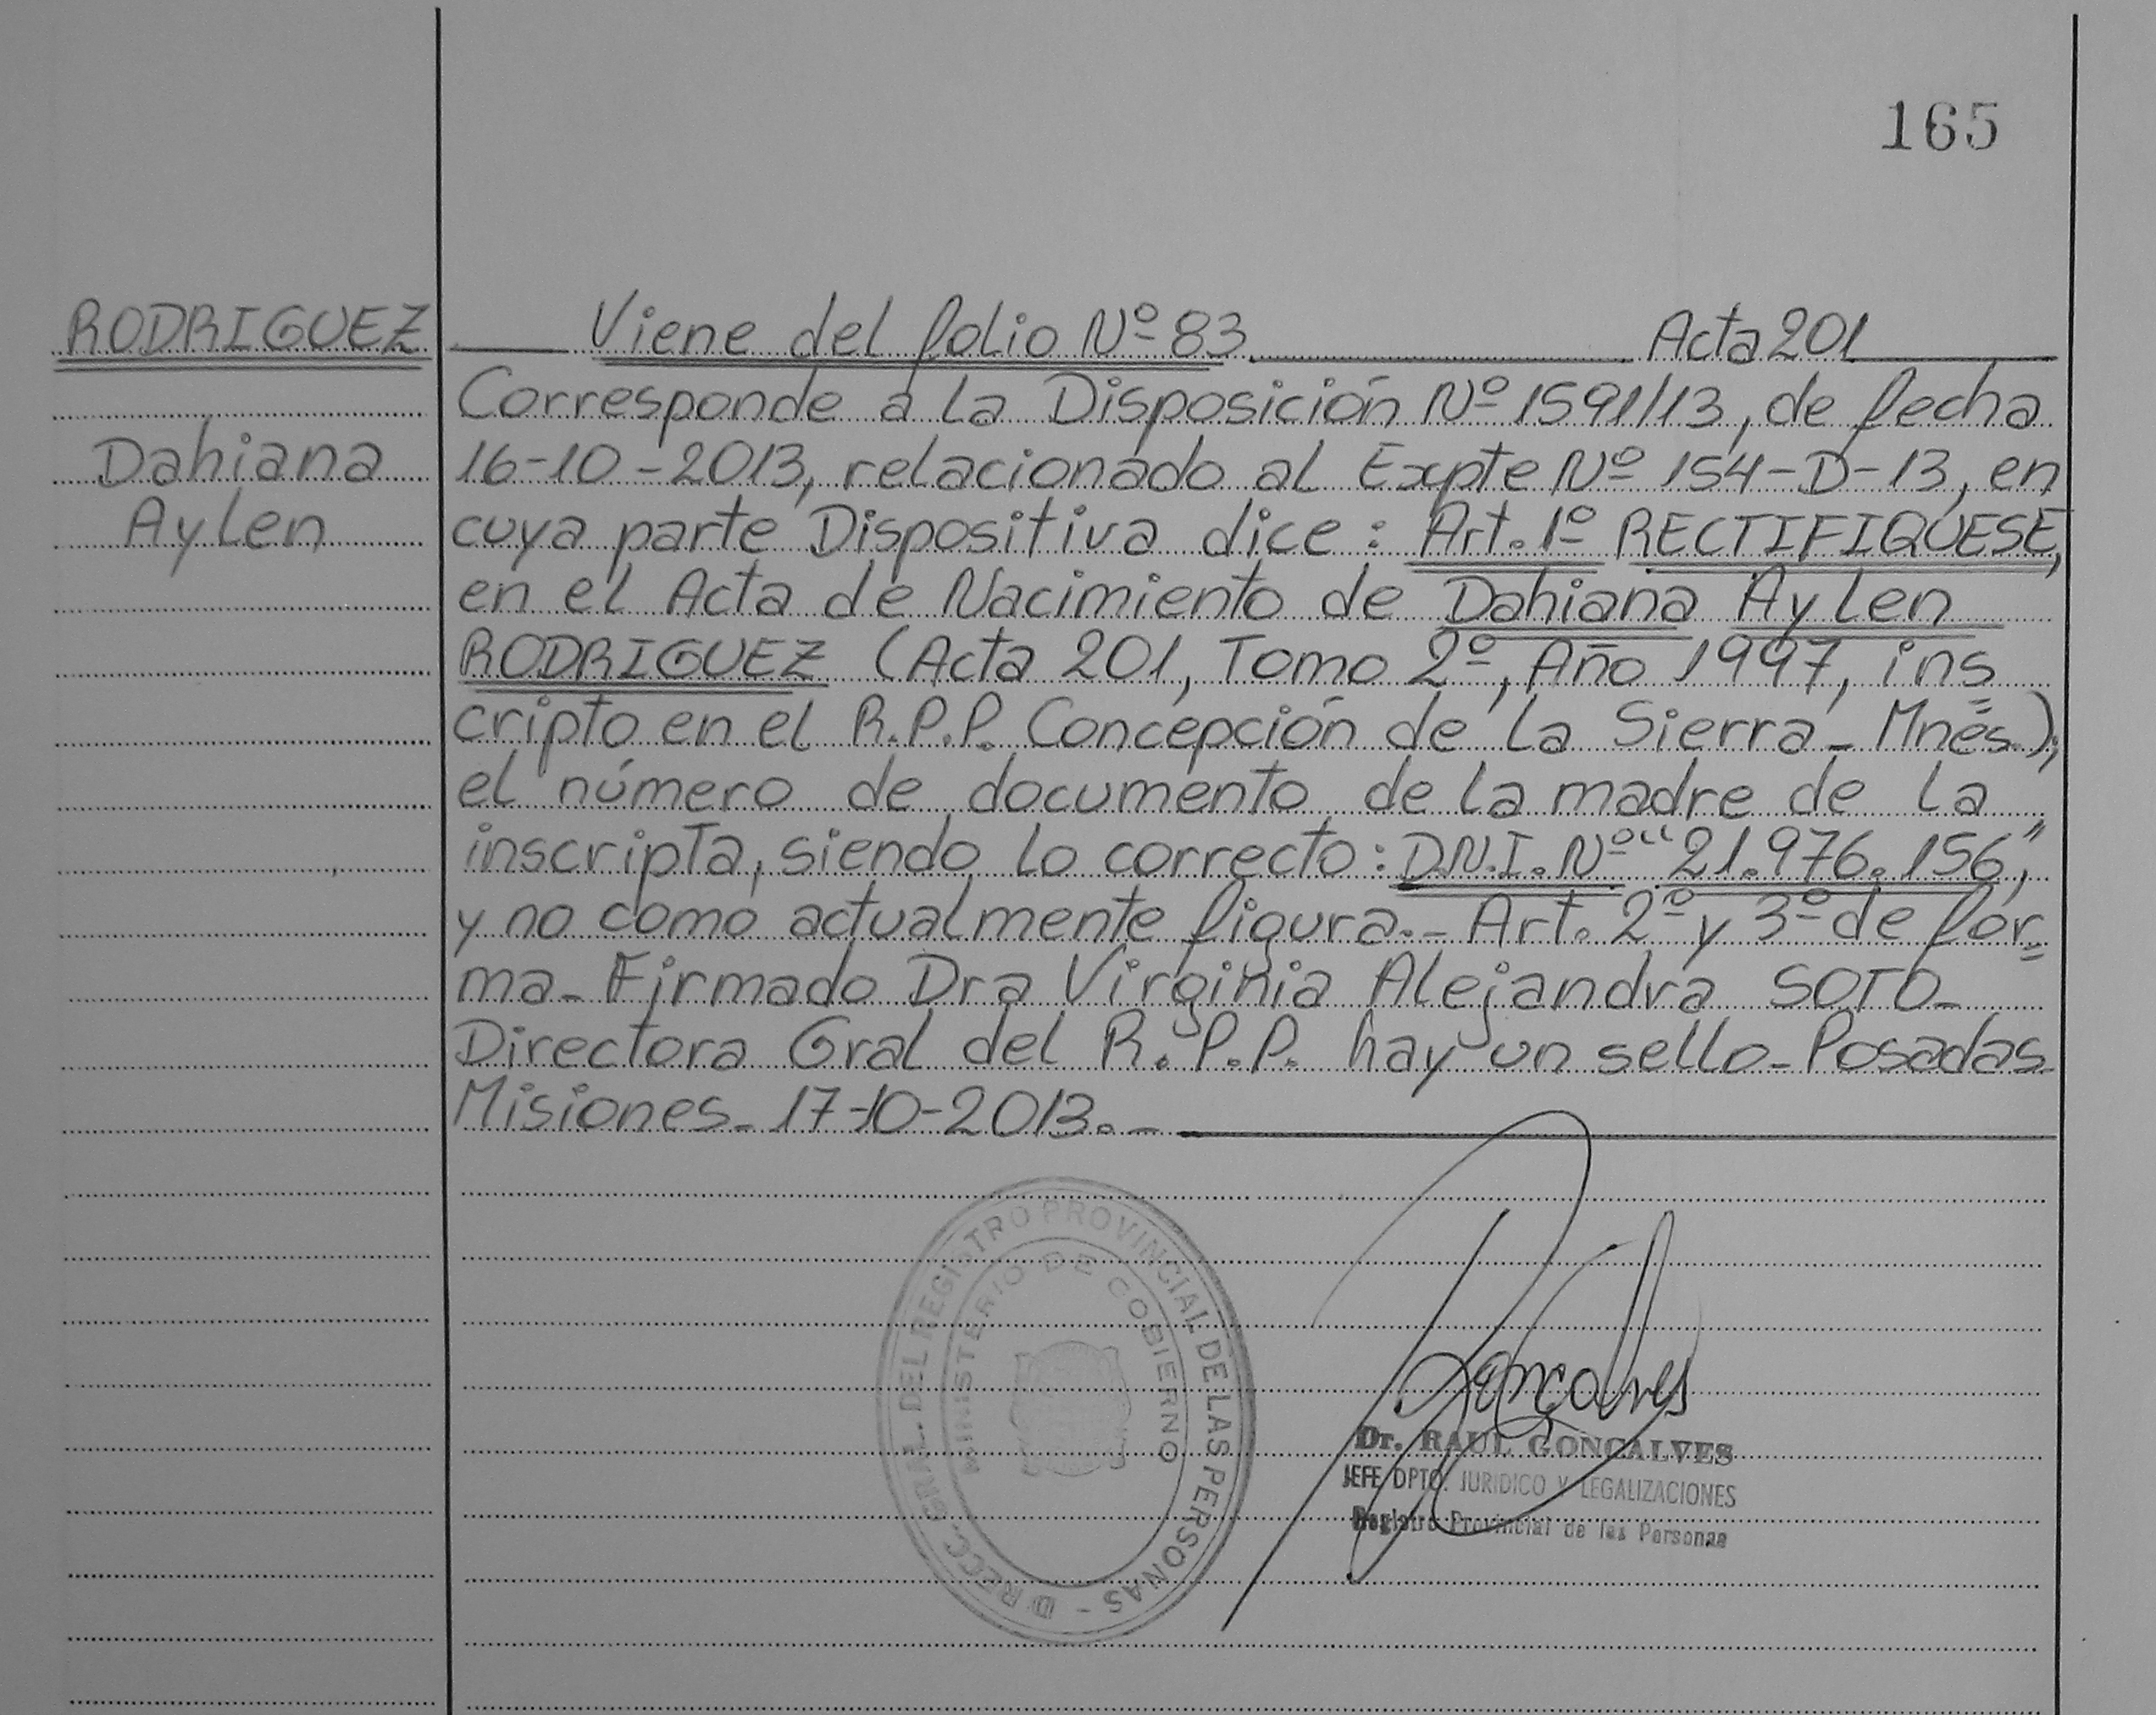 165
RODRIGUEZ
Dahiana
Aylen
Viene del folio Nº 83 Acta 201
Corresponde a la Disposición Nº 1591/13, de fecha
16-10-2013, relacionado al Expte Nº 154-D-13, en
cuya parte Dispositiva dice: Art. 1º RECTIFIQUESE,
en el Acta de Nacimiento de Dahiana Aylen
RODRIGUEZ (Acta 201, Tomo 2º, Año 1997, ins
cripto en el R.P.P. Concepción de la Sierra - Mnes.);
el número de documento de la madre de la
inscripta, siendo lo correcto: D.N.I. Nº "21.976.156",
y no como actualmente figura.- Art. 2º y 3º de for=
ma- Firmado Dra Virginia Alejandra SOTO-
Directora Gral del R.P.P. hay un sello- Posadas-
Misiones- 17-10-2013.-
DIRECC. GRAL. DEL REGISTRO PROVINCIAL DE LAS PERSONAS -
MINISTERIO DE GOBIERNO
Gonçalves
Dr. RAUL GONCALVES
JEFE DPTO. JURIDICO Y LEGALIZACIONES
Registro Provincial de las Personas